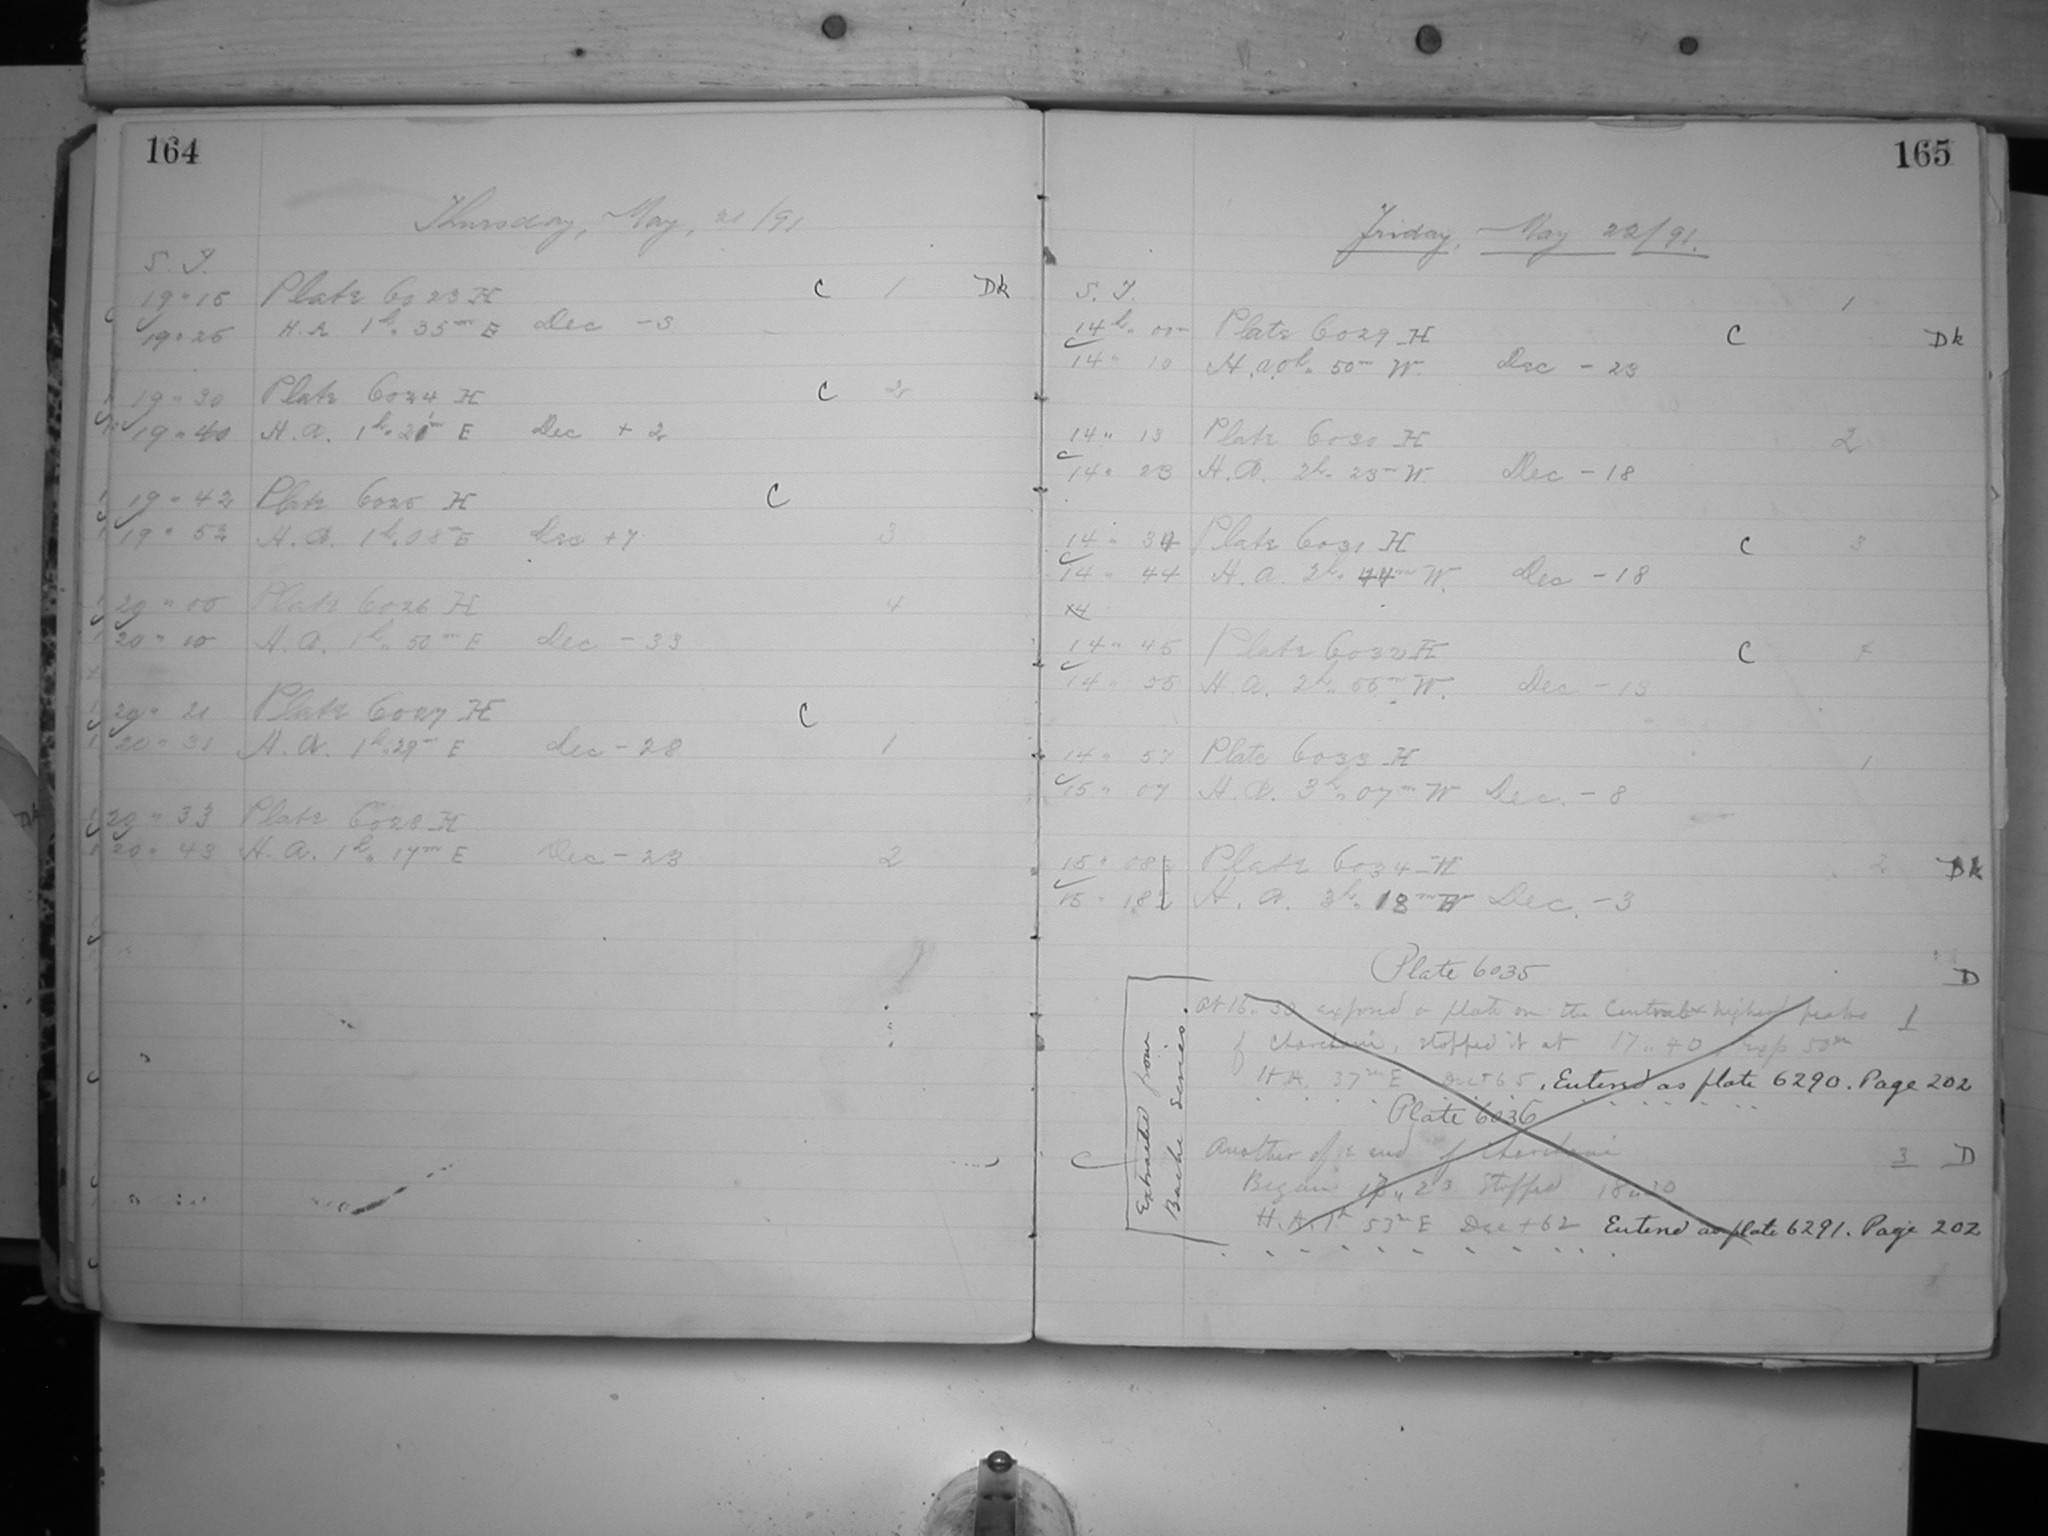 164
Thursday, May, 21/91
S. T.
19 " 15 Plate 6023 H C 1 Dk
19 " 25 H.A. 1h " 35m E Dec - 3
19 " 30 Plate 6024 H C 2
19 " 40 H.A. 1h " 21m E Dec + 2
19 " 42 Plate 6025 H C
19 " 52 H.A. 1h " 08 E Dec + 7 3
20 " 00 Plate 6026 H 4
20 " 10 H.A. 1h " 50m E Dec - 33
20 " 21 Plate 6027 H C
20 " 31 H.A. 1h " 29m E Dec - 28 1
20 " 33 Plate 6028 H
20 " 43 H.A. 1h " 17m E Dec - 23 2
165
Friday, May 22/91.
S. T. 1
14h " 00m Plate 6029 H C Dk
14 " 10 H.A. 0h " 50m W. Dec - 23
14 " 13 Plate 6030 H 2
14 " 23 H.A. 2h " 23m W. Dec - 18
14 " 34 Plate 6031 H C 3
14 " 44 H.A. 2h " 44m W. Dec - 18
14 " 45 Plate 6032 H C 4
14 " 55 H.A. 2h " 55m W. Dec - 13
14 " 57 Plate 6033 H 1
15 " 07 H.A. 3h " 07m W Dec. - 8
15 " 08 Plate 6034 H 2 Dk
15 " 18 H.A. 3h " 18m W Dec. - 3
Plate 6035 D
At 16 " 50 exposed a plate on the Central & highest peaks 1
of Charchani, stopped it at 17 " 40, exp 50m
H.A. 37m E Dec + 65. Entered as plate 6290. Page 202
Plate 6036
Another of E end of Charchani 3 D
Began " 23 Stopped 18 " 10
H.A. 1h 53m E Dec + 62 Entered as plate 6291. Page 202
Extracted from
Bache Series.